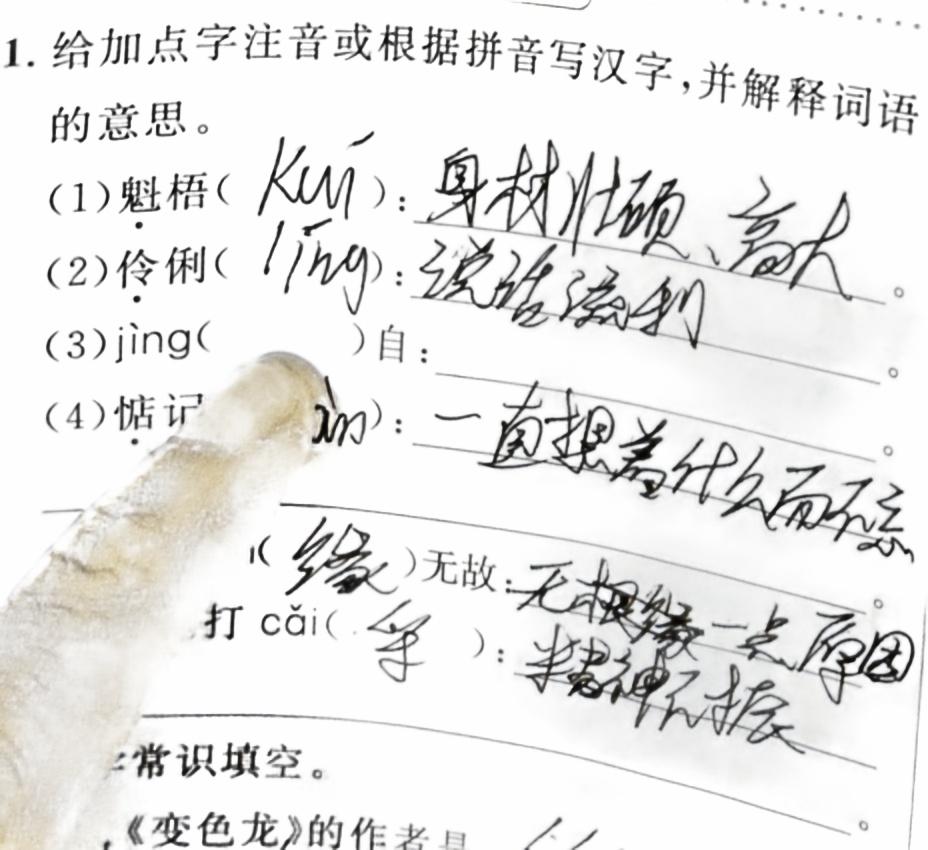 1. 给加点字注音或根据拼音写汉字,并解释词语
的意思。
(1)魁梧( kuí ): 身材壮硕、高大。
(2)伶俐( líng ): 说话流利。
(3)jìng( )自: 。
(4)惦记 ): 一直想着什么而不忘
( 缘 )无故: 无根缘一点原因。
打 cǎi( 采 ): 精神不振
常识填空。
《变色龙》的作者是